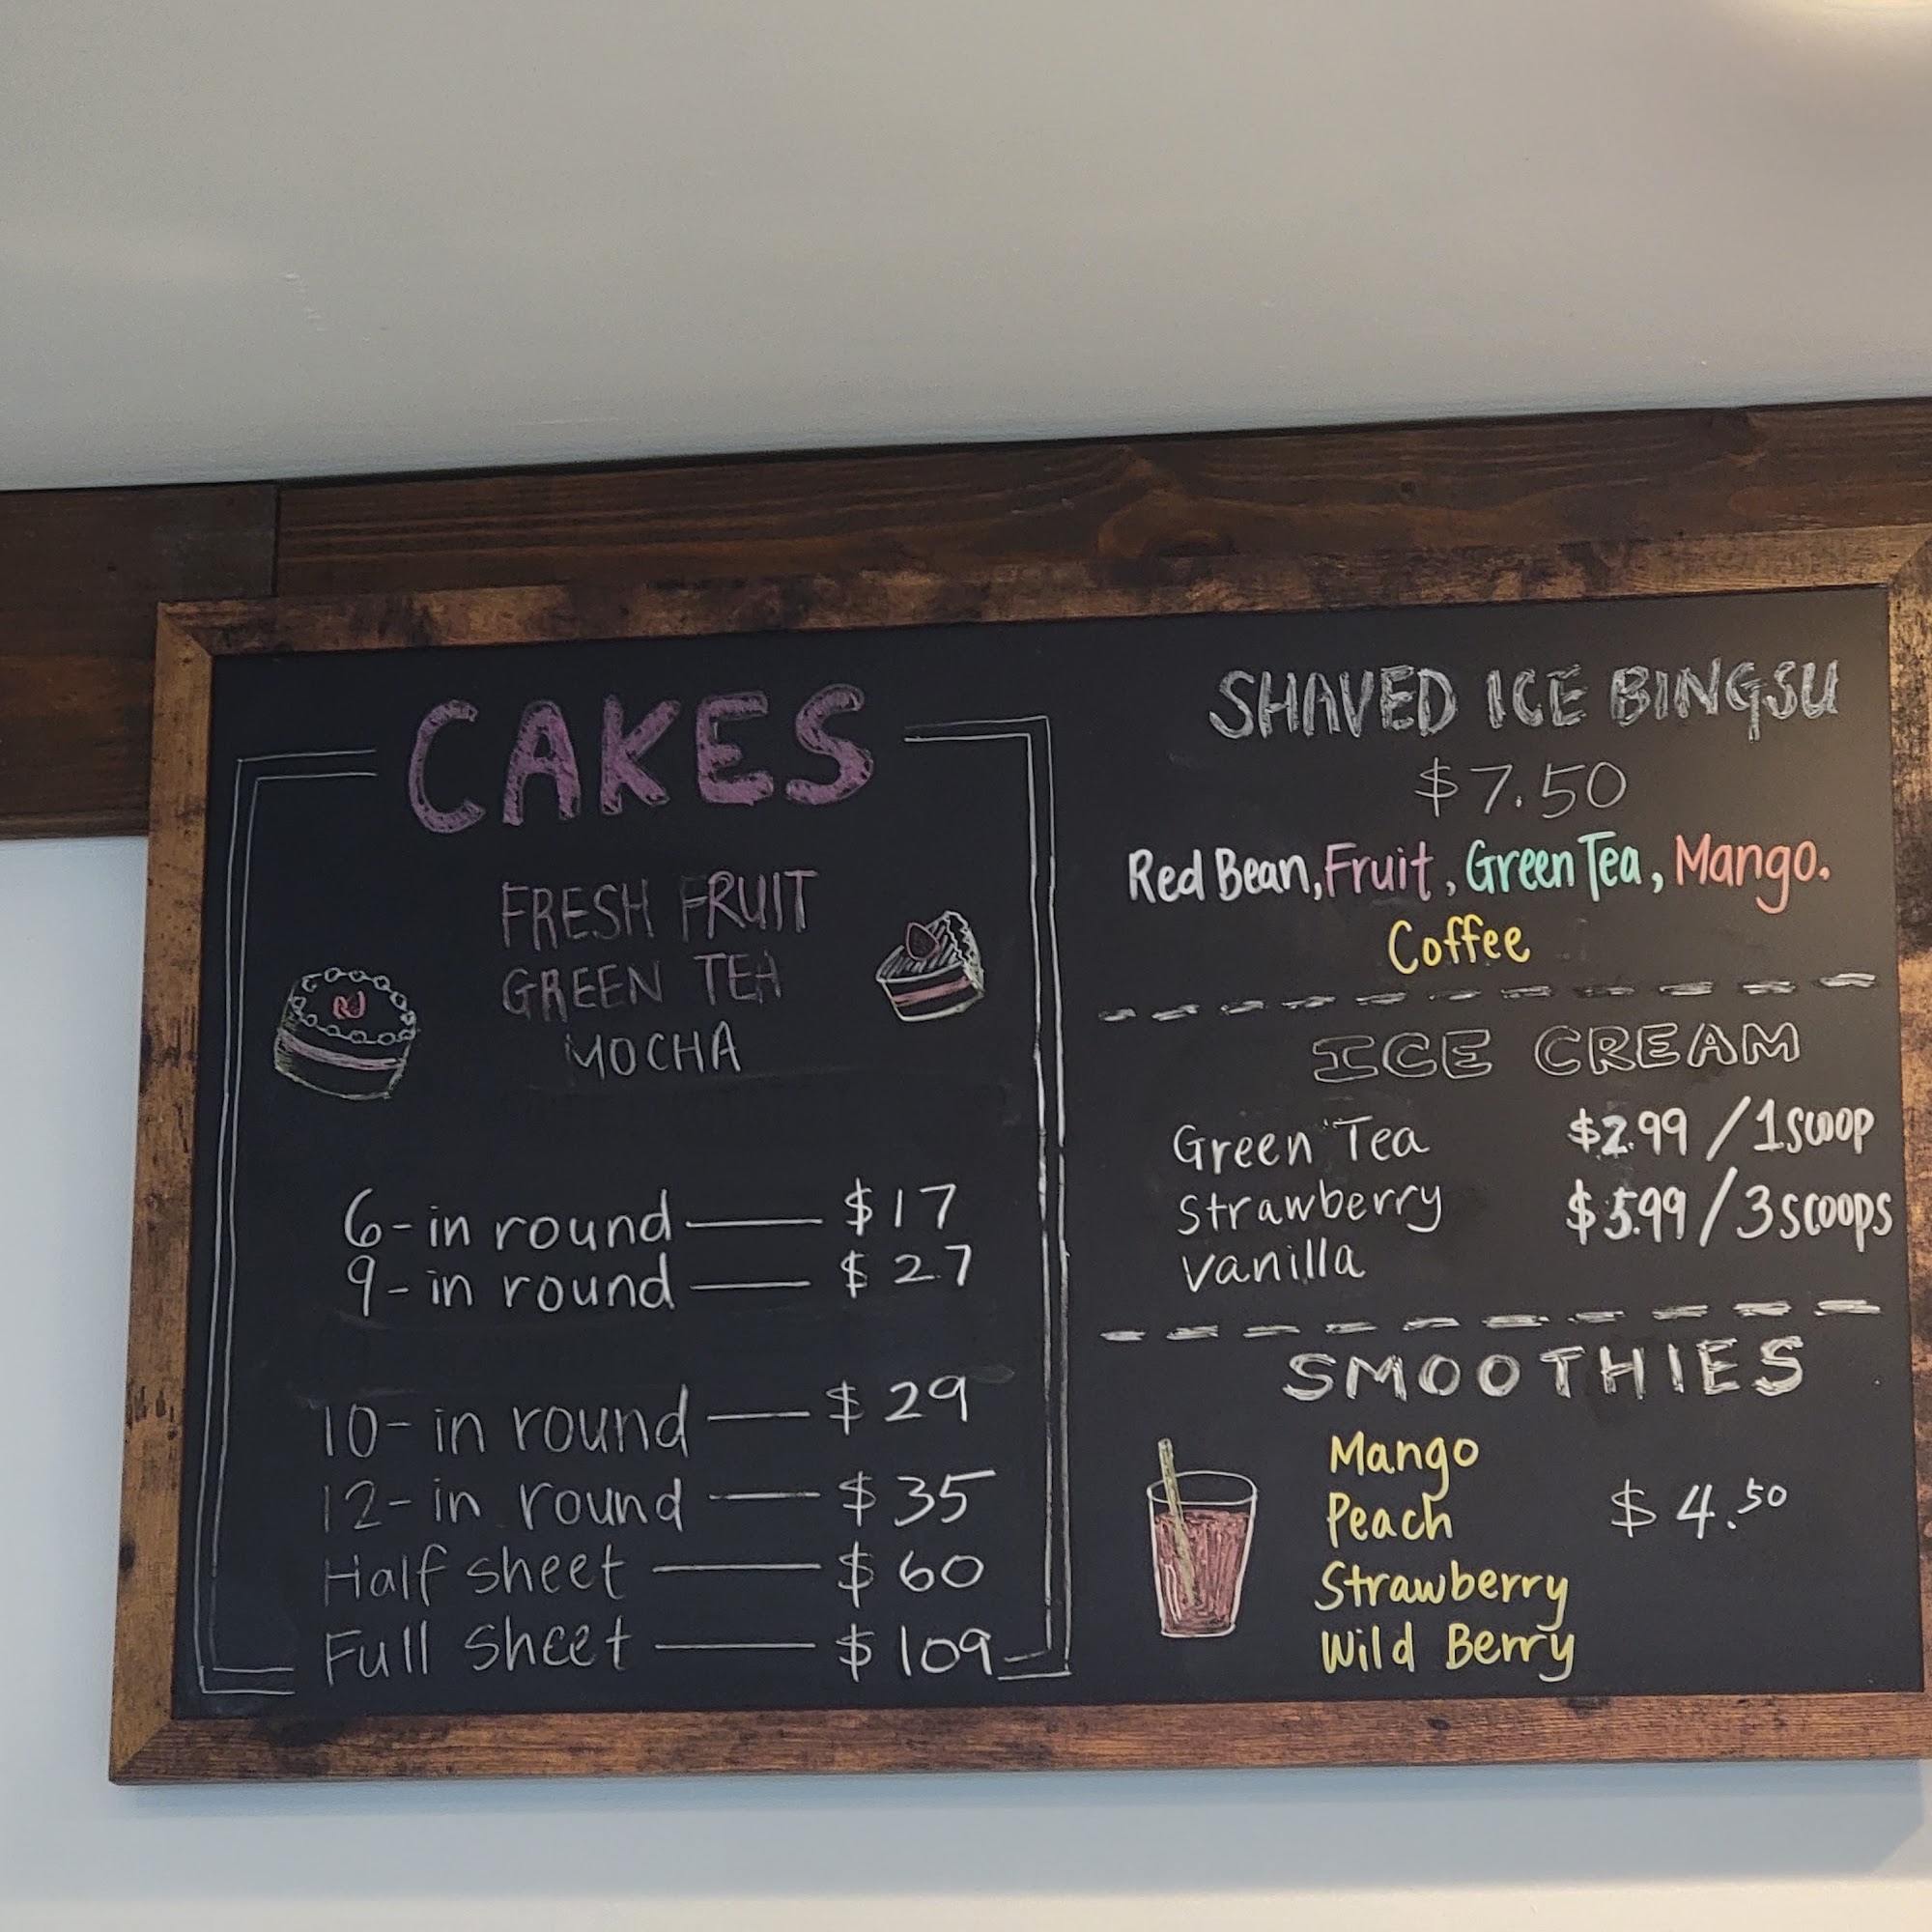 CAKES
FRESH FRUIT
GREEN TEA
MOCHA
6-in round — $17
9-in round — $27
10-in round — $29
12-in round — $35
Half sheet — $60
Full sheet — $109
SHAVED ICE BINGSU
$7.50
Red Bean, Fruit, Green Tea, Mango.
Coffee
ICE CREAM
Green Tea $2.99 / 1 scoop
Strawberry $5.99 / 3 scoops
Vanilla
SMOOTHIES
Mango
Peach $4.50
Strawberry
Wild Berry